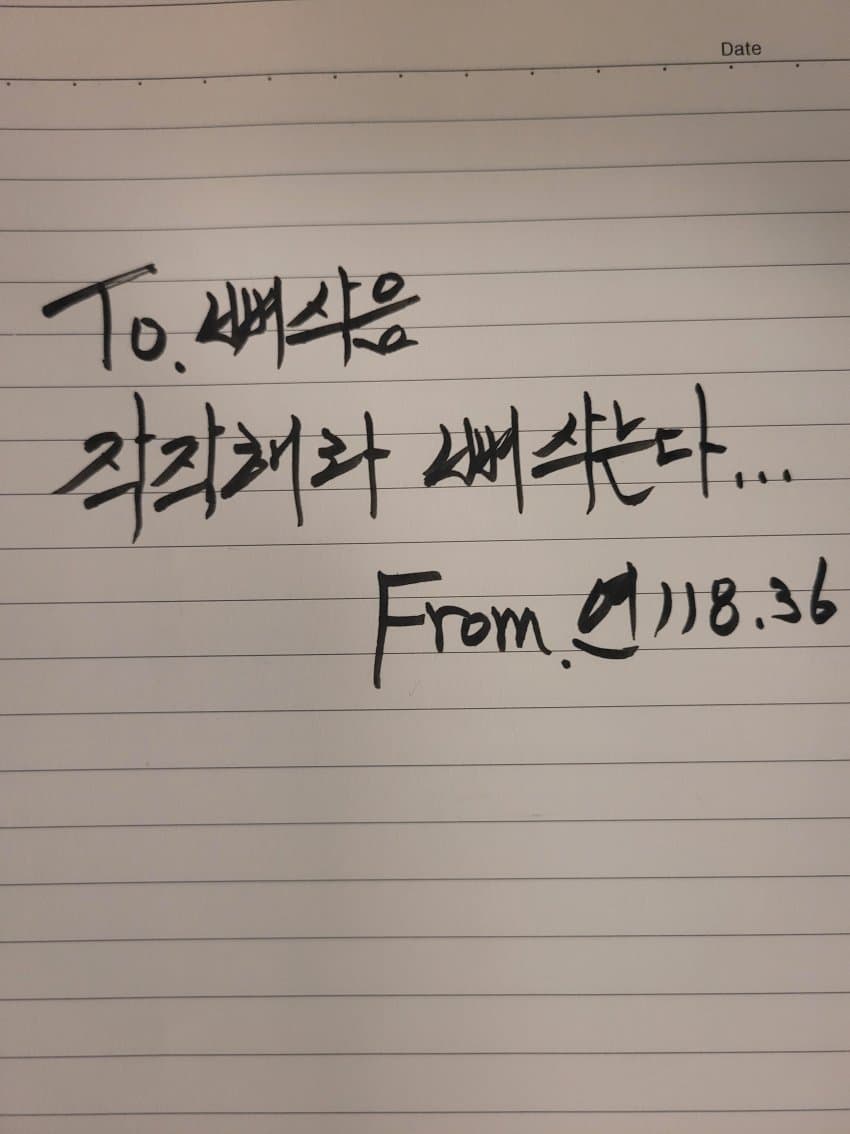 Date
To. 뼈삭음
작작해라 뼈 삭는다...
From. 연118.36